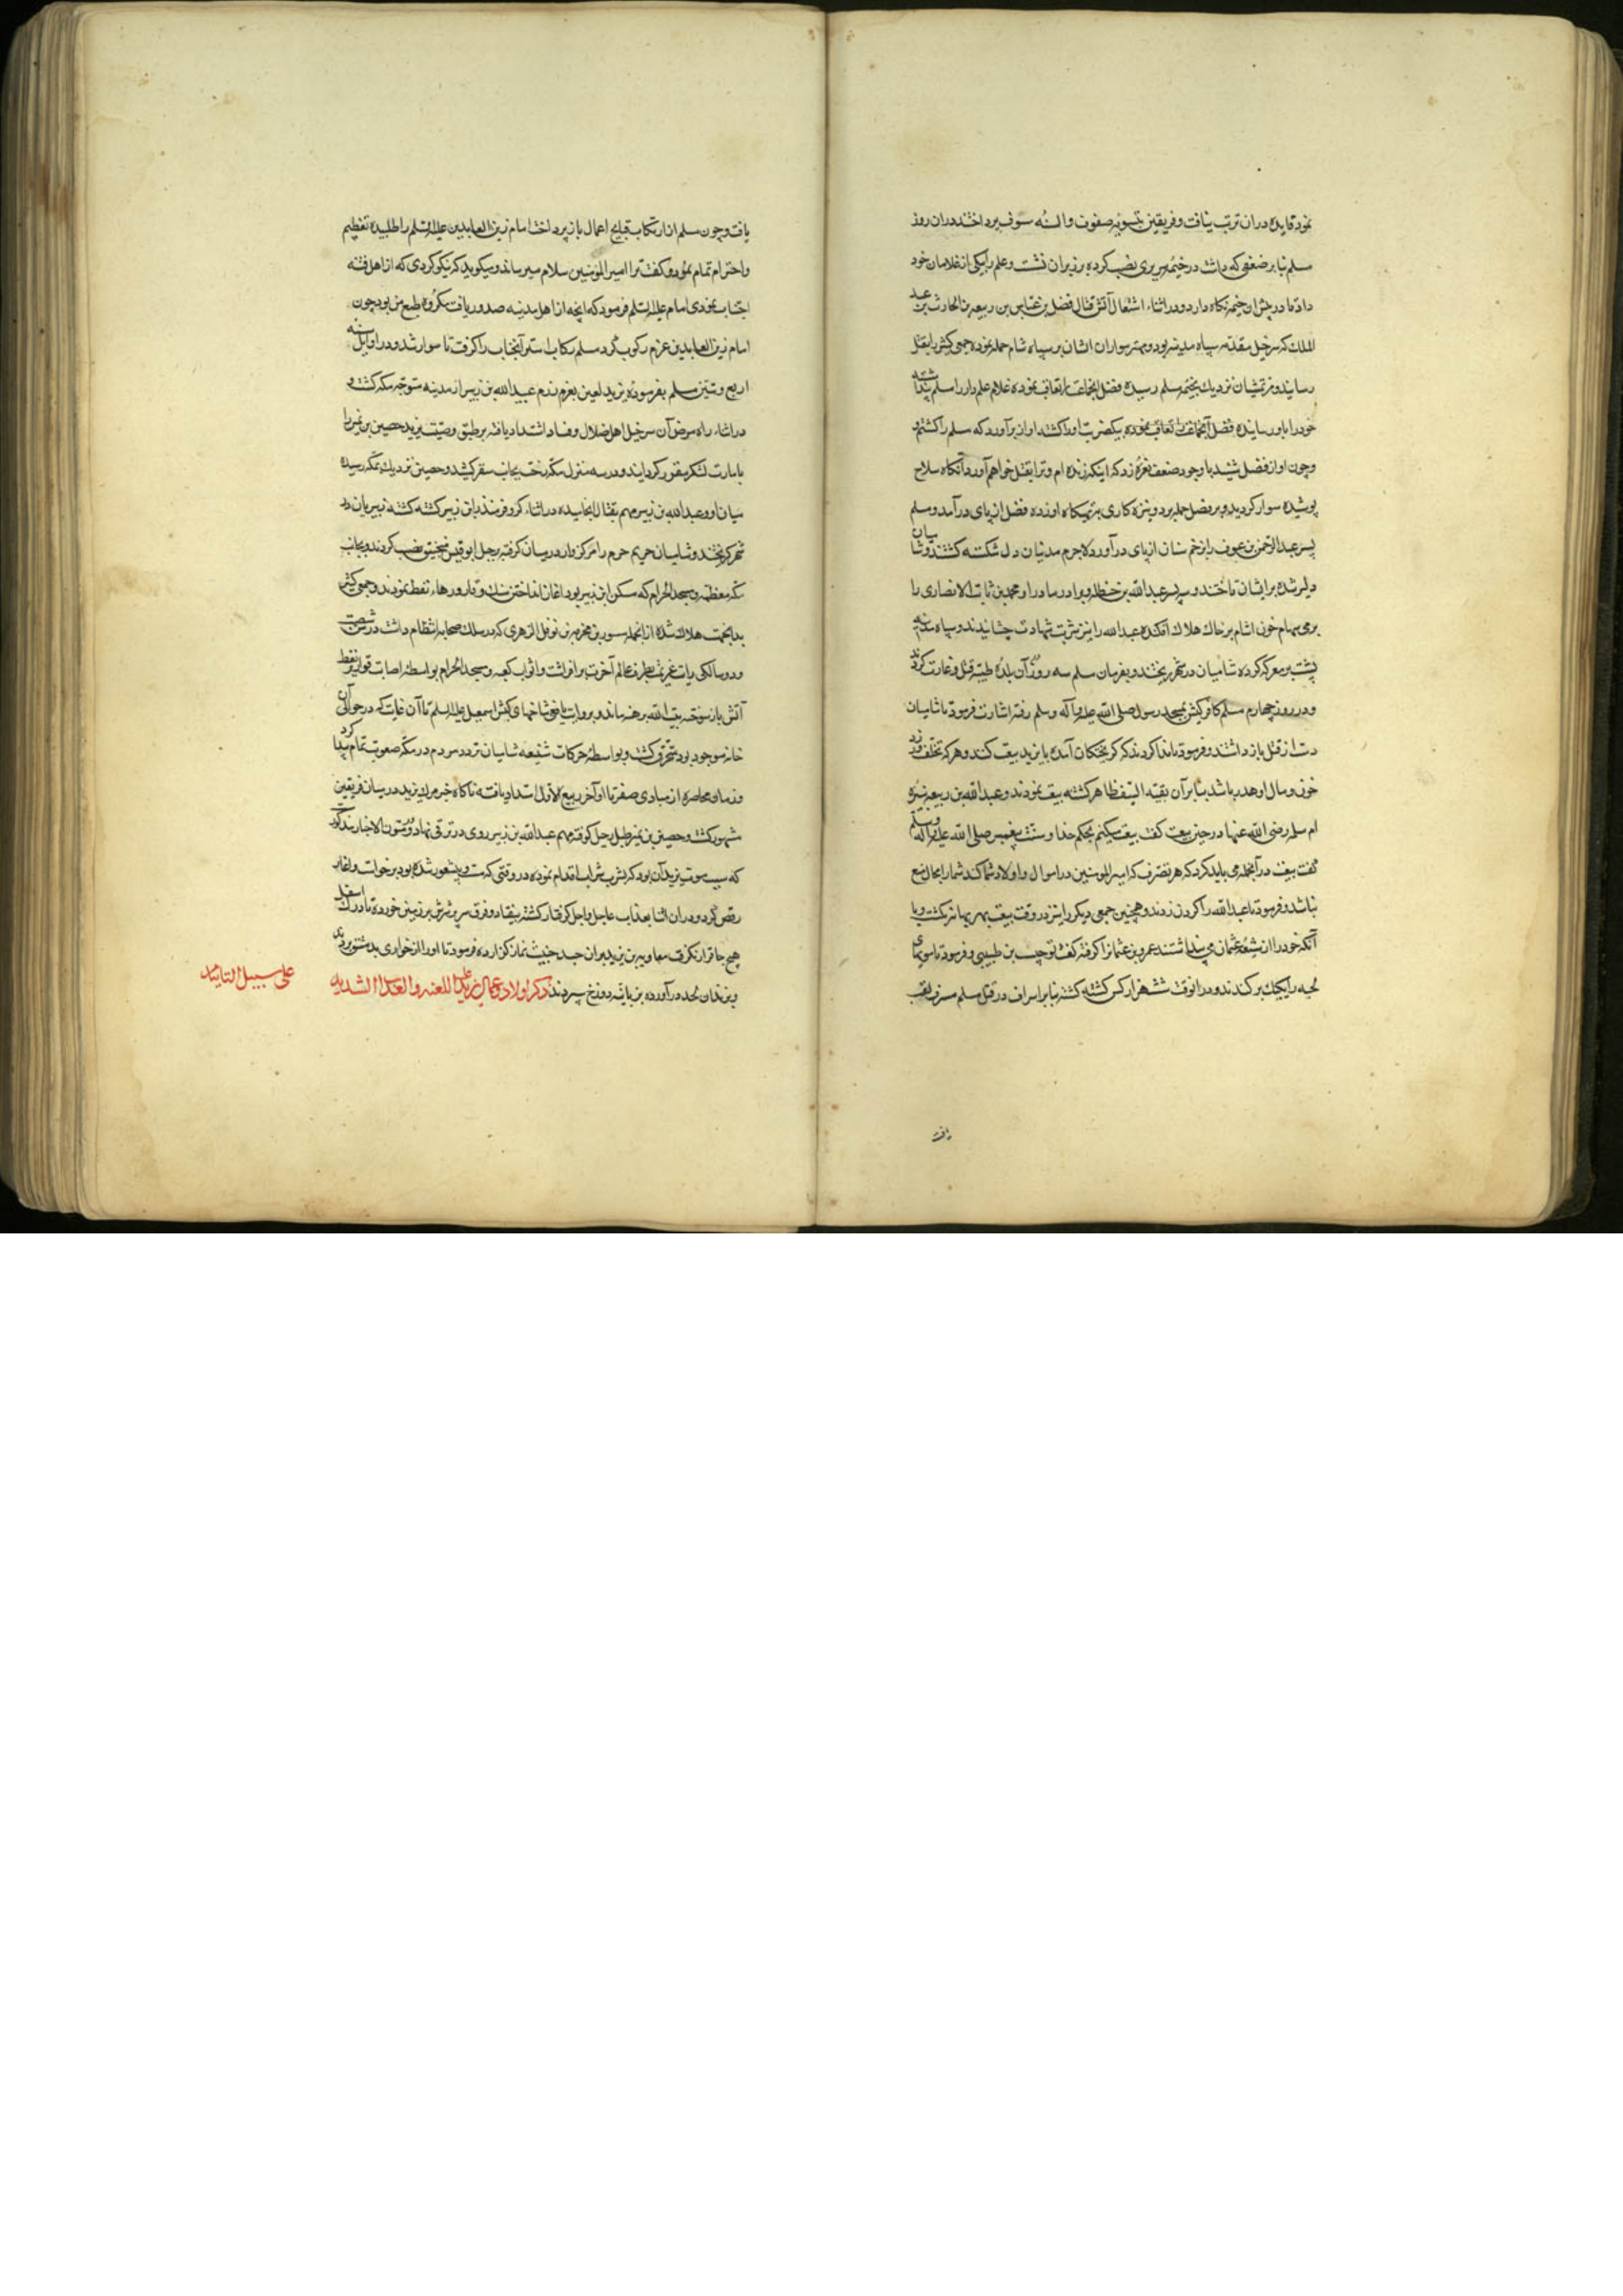 نمود فایده دران ترتب نیافت و فریقین بتسویه صفوف و السنه سیوف پرداختند دران روز
مسلم بنا بر ضعفی که داشت در خیمه سریری نصب کرده بر زبران نشست و علم را بیکی از غلامان خود
داد تا در پیش ان خیمه نگاه دارد و در اثناء اشتعال آتش قتال فضل بن عباس بن ربیعه بن الحارث بن عبد
الملک که سرخیل مقدمه سپاه مدینه بود و بهتر سواران ایشان بر سپاه شام حمله نموده جمعی کثیر را بقتل
رسانید و هزیمتشان نزدیک بخیمه مسلم رسیده فضل انجماعت را تعاقب نموده غلام علم دار را مسلم پنداشته
خود را باو رسانیده بیکضربت او را کشت و اواز برآورد که مسلم را کشتم و
و چون اواز فضل شنید با وجود ضعف نعره زد که اینک زنده ام و ترا بقتل خواهم آورد آنکاه سلاح
پوشیده سوار کردید و بر فضل حمله برد و نیزه کاری بر تهیکاه او زده فضل از پای درآمد و مسلم
پسر عبدالرحمن بن عوف را بزخم سنان از پای درآورد لاجرم مدنیان دل شکسته کشتند و شامیان
دلیر شده بر ایشان تاختند و سه پسر عبدالله بن حنظله و برادر مادر او محمد بن ثابت الانصاری را
برمی سهام خون اشام بر خاک هلاک افکنده عبدالله را نیز شربت شهادت چشانیدند و سپاه مدینه
پشت بر معرکه کرده شامیان در شهر ریختند و بفرمان مسلم سه روز آن بلده طیبه قتل و غارت کردند
و در روز چهارم مسلم کافرکیش بمسجد رسول صلی الله علیه و آله وسلم رفته اشارت فرمود تا شامیان
دست از قتل باز داشتند و فرمود تا ندا کردند که کریختکان آمده با یزید بیعت کنند و هر که تخلف ورزد
خون و مال او هدر باشد بنا بر آن بقیة السیف ظاهر کشته بیعت نمودند و عبدالله بن ربیعه نبیره
ام سلمه رضی الله عنها در حین بیعت کفت بیعت میکنم بحکم خدا و سنت پیغمبر صلی الله علیه و اله وسلم
کفت بیعت در آنجمله می باید کرد که هر تصرف که امیرالمومنین در اموال و اولاد شما کند شما را مجال منع
نباشد و فرمود تا عبدالله را کردن زدند و همچنین جمعی دیکر را نیز در وقت بیعت بهر بهانه بکشت و با
آنکه خود را از شیعه عثمان می پنداشتند عمرو بن عثمانرا کرفته کفت و فرمود تا مویهای
لحیه را یکیک برکندند و درانوقت ششهزار کس کشته کشته بنا بر اسراف در قتل مسلم مسرف لقب
یافت
یافت و چون مسلم از ارتکاب قبایح اعمال باز پرداخت امام زین العابدین علیه السلم را طلبیده تعظیم
و احترام تمام نمود و کفت ترا امیرالمومنین سلام میرساند و میکوید که نیکو کردی که از اهل فتنه
اجتناب نمودی امام علیه السلم فرمود که انچه از اهل مدینه صدور یافت مکروه طبع من بود چون
امام زین العابدین عزم رکوب کرد مسلم رکاب استر آنجناب را کرفت تا سوار شد و در اوایل سنه
اربع و ستین مسلم بفرموده یزید لعین بعزم رزم عبدالله بن زبیر از مدینه متوجه مکه کشت و
در اثناء راه مرض آن سرخیل اهل ضلال و فساد اشتداد یافته بر طبق وصیت یزید حصین بن نمیر را
بامارت لشکر مقرر کردانید و در سه منزل مکه رخت بجانب سقر کشید و حصین نزدیک بمکه رسیده
میان او و عبدالله بن زبیر مهم بقتال انجامیده در اثناء کر و فر منذر بن زبیر کشته کشته زبیریان در
شهر کریختند و شامیان حریم حرم را مرکزوار در میان کرفته بر جبل ابوقبیس منجنیق نصب کردند و بجانب
مکه معظمه و مسجدالحرام که مسکن ابن زبیر بود اغاز انداختن سنک و قارورهاء نفط نمودند و جمعی کثیر
بدانجهت هلاک شده از انجمله مسور بن مخرمه بن نوفل الزهری که در سلک صحابه انتظام داشت در سن شصت
و دو سالکی رایت عزیمت بطرف عالم آخرت برافراشت و اثواب کعبه و مسجدالحرام بواسطه اصابت قواریر نفط
آتش باز سوخته بیت الله برهنه ماند و بروایت یافعی شاخهای کبش اسمعیل علیه السلم تا آن غایت که در حوالی آن
خانه موجود بود محترق کشت و بواسطه حرکات شنیعه شامیان تردد مردم در مکه صعوبت تمام پیدا کرد
و زمان محاصره از مبادی صفر تا اواخر ربیع الاول امتداد یافته ناکاه خبر مرک یزید در میان فریقین
مشهور کشت و حصین بن نمیر طبل رحیل کوفته مهم عبدالله بن زبیر روی در ترقی نهاد و در متون الاخبار مذکور
که سبب موت یزید آن بود که بشرب شراب اقدام نموده در وقتی که مست و بیشعور شده بود برخواست و اغاز
رقص کرد و دران اثنا بعذاب عاجل و اجل کرفتار کشته بیفتاد و فرق سر پرشرش بر زمین خورده تا درک اسفل
هیچ جا قرار نکرفت معاویه بن یزید بران جسد خبیث نماز کزارده فرمود تا او را از خواری بدمشق بردند
و بزندان لحد درآورده بزبانیه دوزخ سپردند ذکر اولاد و عمال یزید علیه اللعنه والعذاب الشدید
علی سبیل التابید